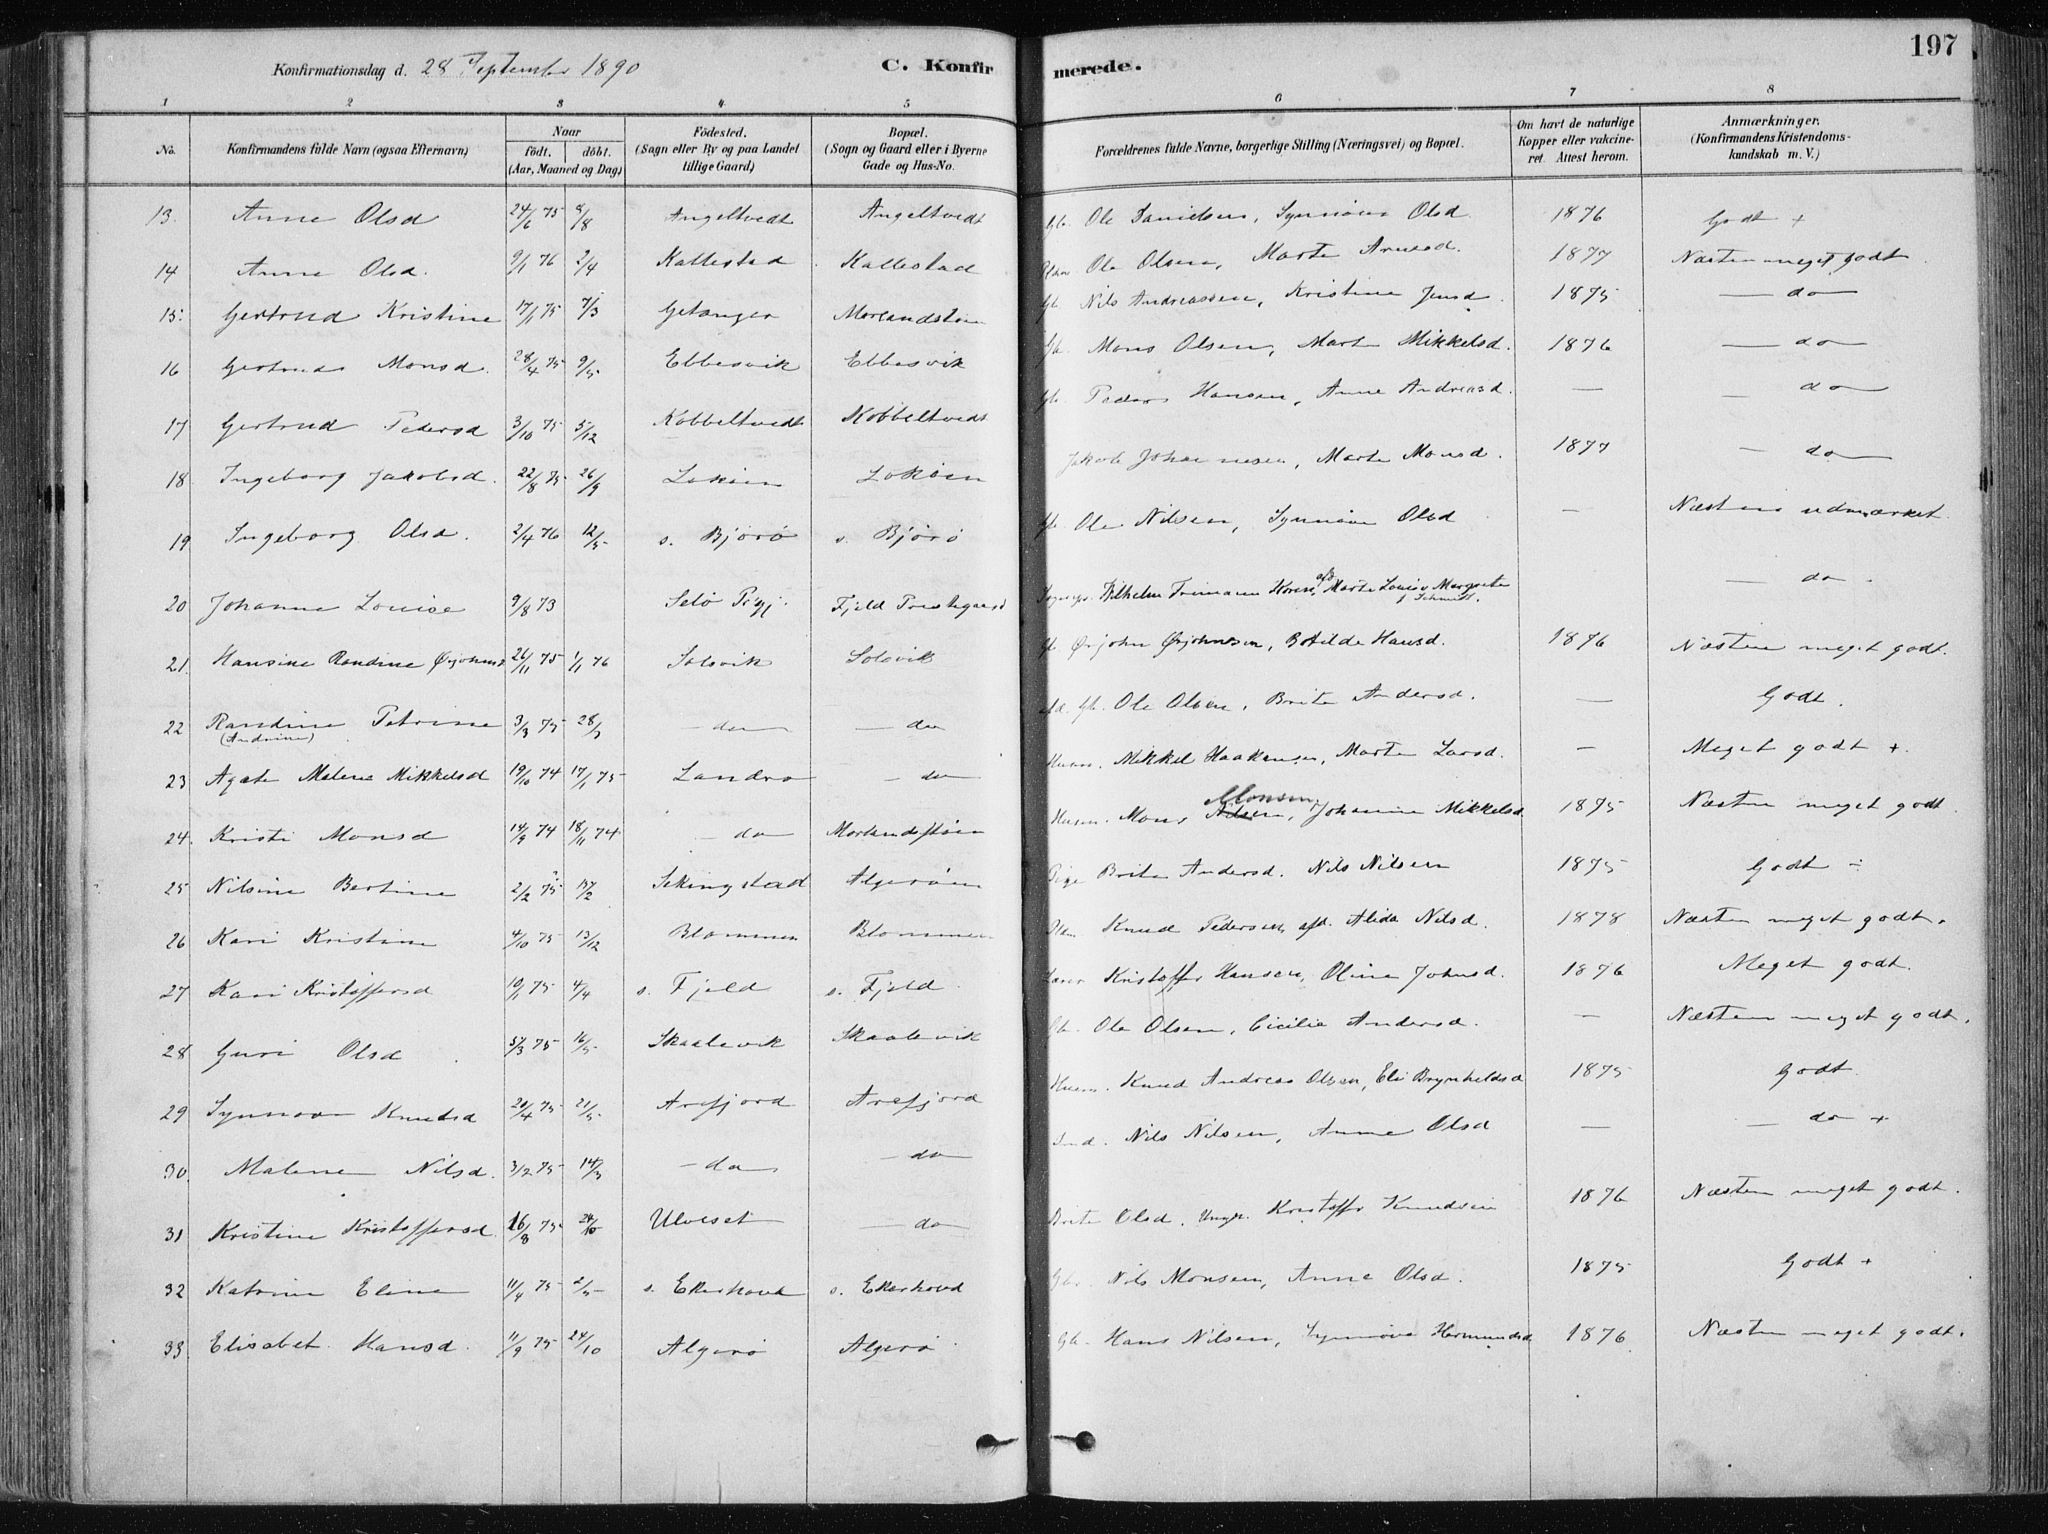 197
Konfirmationsdag d. 28 September 1890 C. Konfirmerede.
1 2 3 4 5 6 7 8
No. Konfirmandens fulde Navn (ogsaa Efternavn) Naar født, døbt. (Aar, Maaned og Dag) Födested. (Sogn eller By og paa Landet tillige Gaard) Bopæl. (Sogn og Gaard eller i Byerne Gade og Hus-No. Forældrenes fulde Navne, borgerlige Stilling (Næringsvei) og Bopæl. Om havt de naturlige Kopper eller vakcineret. Attest herom. Anmærkninger. (Konfirmandens Kristendomskundskab m. V.)
13. Anne Olsd 24/6 75 8/8 Angeltvedt Angeltvedt Gb. Ole Danielsen, Synnöve Olsd 1876 Godt +
14 Anne Olsd. 9/1 76 2/4 Kallestad Kallestad Ole Olsen, Marte Arnesd. 1877 Næsten meget godt
15. Gertrud Kristine 17/1 75 7/3 Getanger Morlandstøen Gb. Nils Andreassen, Kristine Jensd. 1875 — do
16 Gertrud Monsd. 28/4 75 9/5 Ebbesvik Ebbesvik Gb. Mons Olsen, Marte Mikkelsd. 1876 — do
17 Gertrud Pedersd 3/10 75 5/12 Kobbeltvedt Kobbeltvedt Gb. Peder Hansen, Anne Andreasd. — — do
18 Ingeborg Jakobsd. 22/8 75 26/9 Lokøen Lokøen Jakob Johannesen, Marte Monsd. 1877 — do
19 Ingeborg Olsd. 2/4 76 12/5 s. Bjørø s. Bjørø Gb. Ole Nilsen, Synnöve Olsd — Næsten udmærket.
20 Johanne Louise 9/8 73 Selø Prgj. Fjeld Prestegaard Sognepr. Vilhelm Frimann Koren, afd. Marte Louise Margrete f. Schmidt. — do.
21. Hansine Randine Ørjohnsd 26/11 75 1/1 76 Solsvik Solsvik Gb. Ørjohn Ørjohnsen, Botilde Hansd. 1876 Næsten meget godt.
22 Randine Petrine (Andrine) 3/3 75 28/3 — do — do Gb. Ole Olsen, Brite Andersd. — Godt.
23 Agate Malene Mikkelsd 19/10 74 17/1 75 Landro — do Husm. Mikkel Haakonsen, Marte Larsd. — Meget godt +.
24. Kristi Monsd 14/9 74 18/11 74 — do Morlandstøen Husm. Mons Nilsen Monsen, Johanne Mikkelsd 1875 Næsten meget godt
25 Nilsine Bertine 2/2 75 Sekingstad Algerøen Pige Brite Andersd. Nils Nilsen 1875 Godt ÷
26 Kari Kristine 4/10 75 13/12 Blommen Blommen Knud Pedersen, afd. Alida Nilsd. 1878 Næsten meget godt.
27 Kari Kristoffersd 10/1 75 4/4 s. Fjeld s. Fjeld Lærer Kristoffer Hansen, Oline Johnsd. 1876 Meget godt.
28 Guri Olsd 5/3 75 16/5 Skaalevik Skaalevik Gb. Ole Olsen, Cicilie Andersd. — Næsten meget godt.
29 Synnøve Knudsd 20/4 75 21/5 Arefjord Arefjord Husm. Knud Andreas Olsen, Eli Brynhildsd 1875 Godt
30. Malene Nilsd. 3/2 75 14/3 — do — do Ind. Nils Nilsen, Anne Olsd — — do +
31 Kristine Kristoffersd. 16/8 75 24/10 Ulveset — do Brite Olsd. Ungk. Kristoffer Knudsen 1876 Næsten meget godt.
32 Katrine Eline 11/4 75 2/5 s. Ekerhovd s. Ekerhovd Gb. Nils Monsen, Anne Olsd. 1875 Godt +
33 Elisabet Hansd. 11/9 75 24/10 Algerø Algerø Gb. Hans Nilsen, Synnöve Hermundsd 1876 Næsten meget godt.